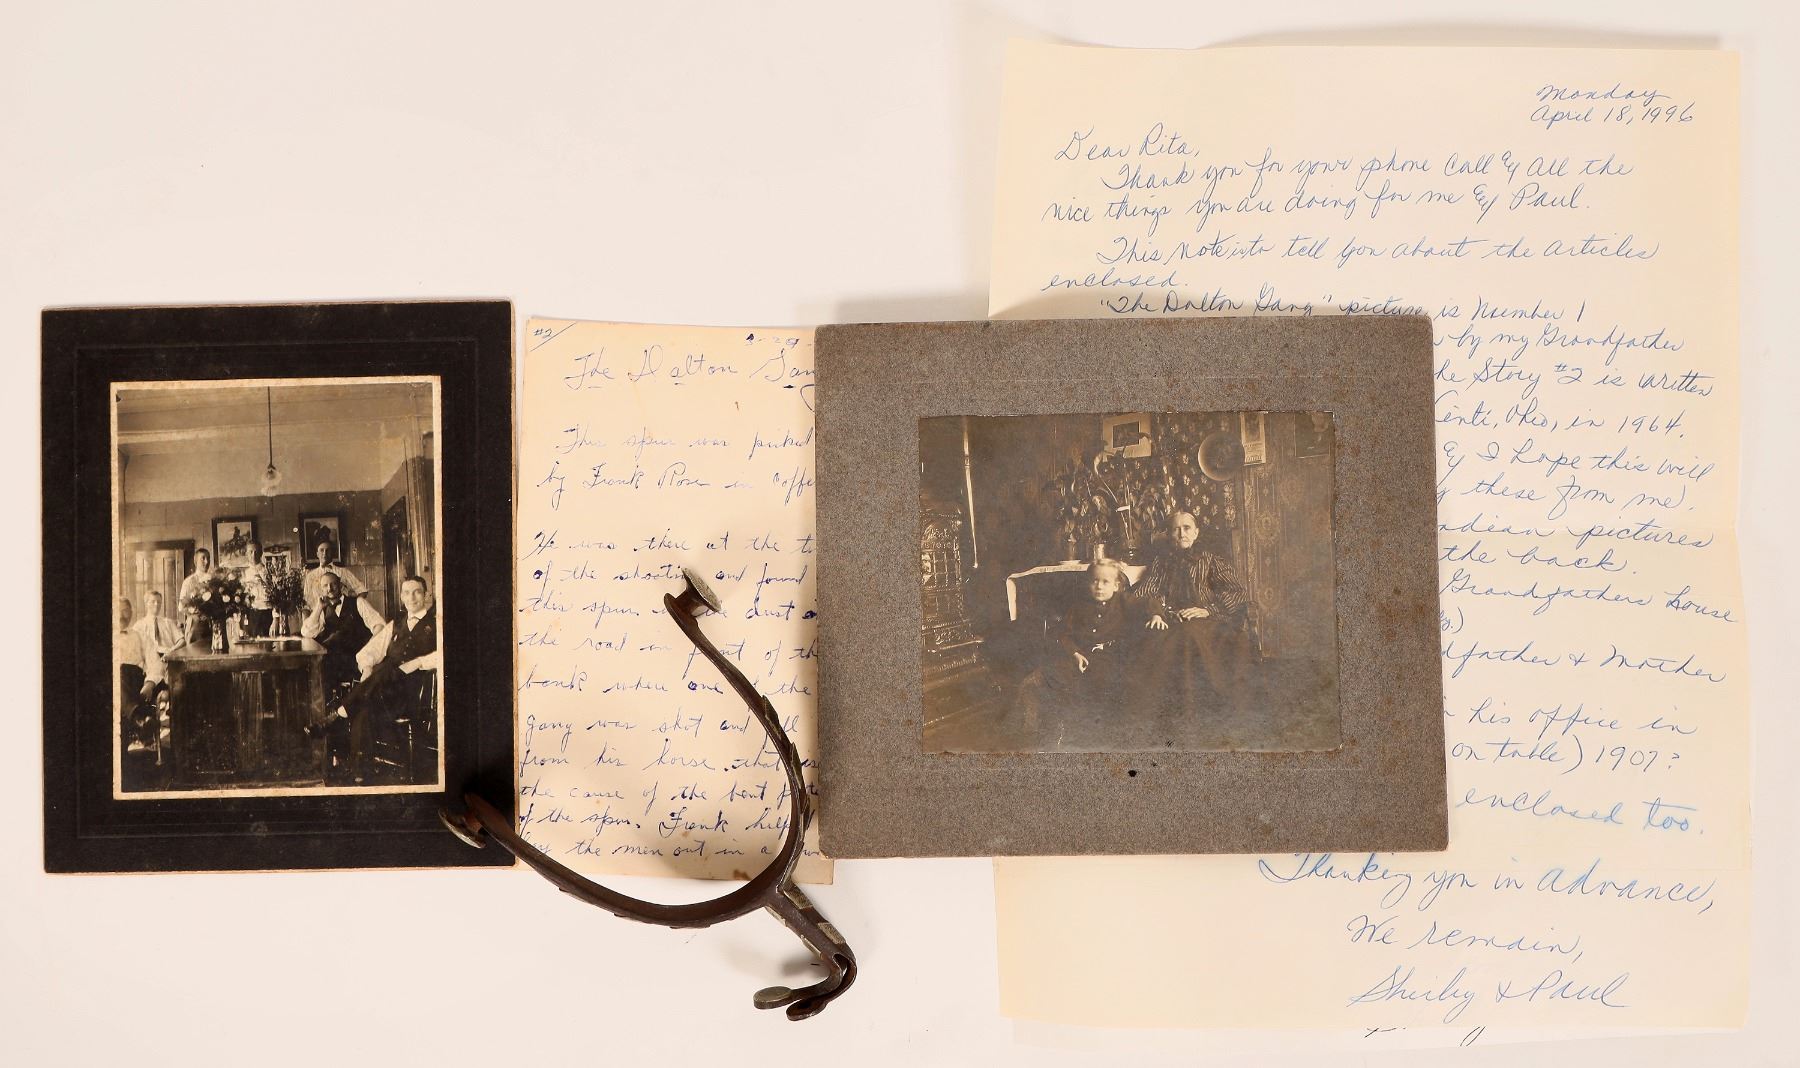 #2
The Dalton Gan
This spur was picked
by Frank Rose in Coffe
He was there at the t
of the shootin and found
this spur in the dust o
the road in front of th
bank where one of the
gang was shot and fell
from his horse. that was
the cause of the bent
of the spur. Frank help
lay the men out in a
Monday
April 18, 1996
Dear Rita,
Thank you for your phone Call & All the
nice things you are doing for me & Paul.
This Note is to tell you about the articles
enclosed.
"The Dalton Gang" picture is Number 1
by my Grandfather
he Story #2 is written
Ohio, in 1964.
& I hope this will
these from me).
ndian pictures
the back.
Grandfathers house
dfather & Mother
his office in
on table) 1907?
enclosed too.
Thanking you in advance,
We remain,
Shirley & Paul